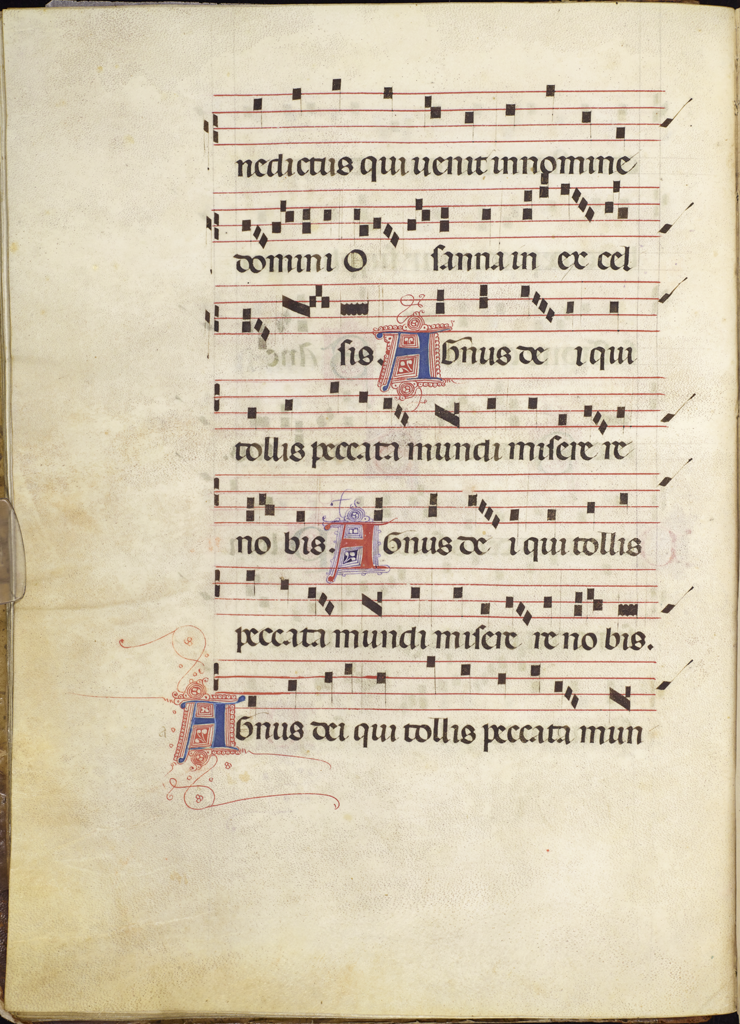 nedictus qui uenit in nomine
domini O sanna in ex cel
sis. Agnus de i qui
tollis peccata mundi misere re
no bis. Agnus de i qui tollis
peccata mundi misere re no bis.
Agnus dei qui tollis peccata mun